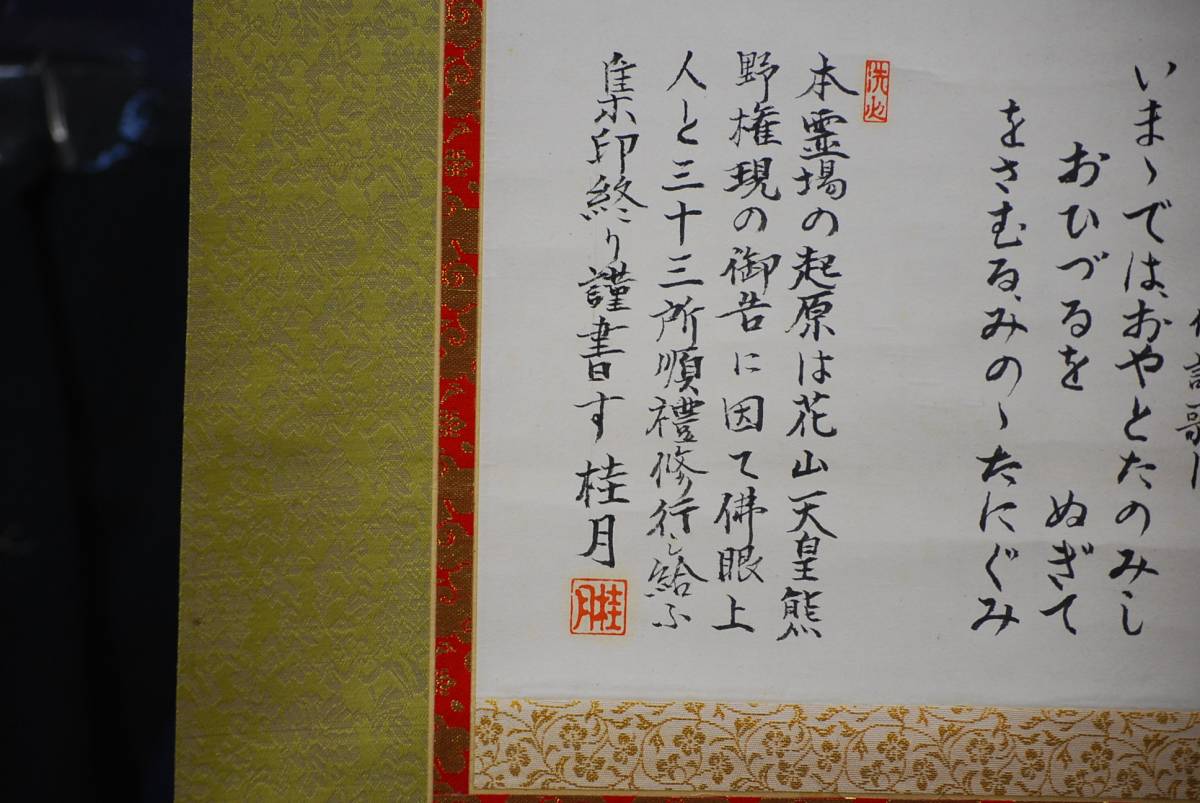 詠歌に
いまゝでは、おやとたのみし
おひづるを　ぬぎて
をさむる、みのゝたにぐみ
洗心
本霊場の起原は花山天皇熊
野権現の御告に因て佛眼上
人と三十三所順禮修行し給ふ
集印終り謹書す 桂月
桂月